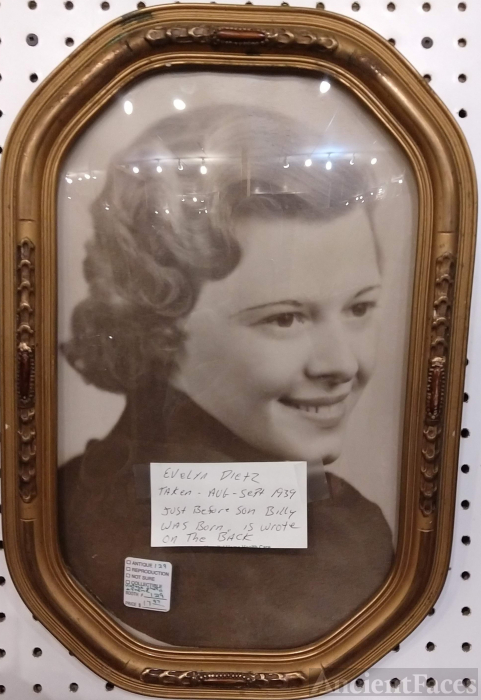 Evelyn Dietz
Taken - Aug - Sept 1939
Just Before Son Billy
was Born. is wrote
on The Back
ANTIQUE 129
REPRODUCTION
NOT SURE
COLLECTIBLE
BOOTH # 129
PRICE $
AncientFaces